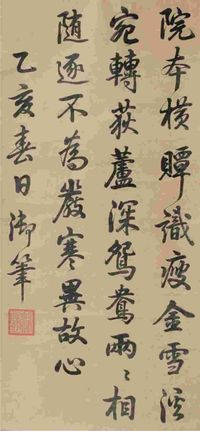 院本橫贉識瘦金雪溪
宛轉荻蘆深鴛鴦兩〻相
隨逐不為嚴寒異故心
乙亥春日御筆